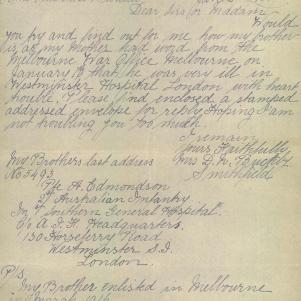 Dear Sir or Madam
Would
you try and find out for me how my brother
is, as my Mother had word from the
Melbourne War Office Melbourne on
January 18 that he was very ill in
Westminster Hospital London with heart
trouble, Please find enclosed a stamped
addressed envelope for reply Hoping I am
not troubling you too much
I remain
Yours Faithfully
My Brothers last address Mrs D. W.
No 5493 Smithfield
Pte A. Edmondson
Australian Infantry
Southern General Hospital"
C/o A. I. F. Headquarters.
130 Horseferry Road
Westminster S.I.
London.
P.S.
My Brother enlisted in Melbourne
1916